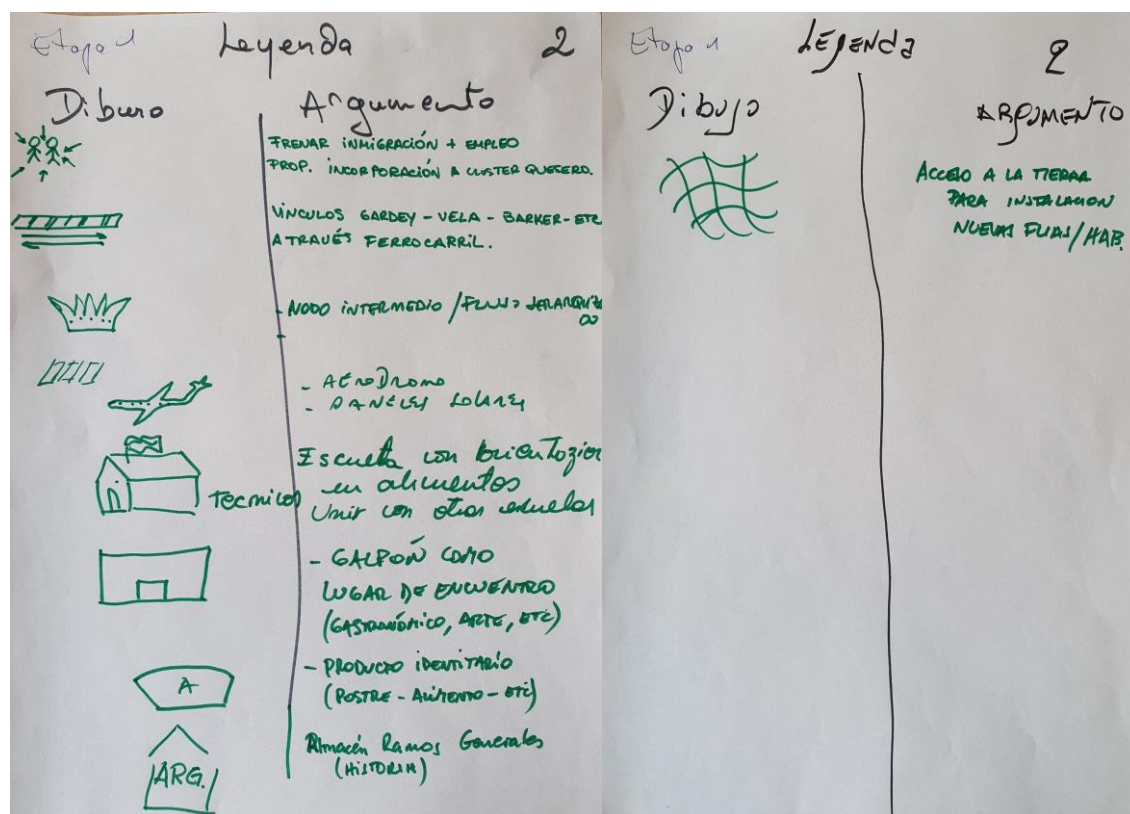 Etapa 1 Leyenda 2
Diburo Argumento
FRENAR INMIGRACIÓN + EMPLEO
PROP. INCORPORACIÓN A CLUSTER QUESERO.
VINCULOS GARDEY - VELA - BARKER - ETC
A TRAVÉS FERROCARRIL.
- NODO INTERMEDIO / FLUJO JERARQUIZA
DO
- AERODROMO
- PANELES SOLARES
Escuela con orientozion
Tecnicos en alimentos
Unir con otras escuelas
- GALPON COMO
LUGAR DE ENCUENTRO
(GASTRONÓMICO, ARTE, ETC)
- PRODUCTO IDENTITARIO
(POSTRE - ALIMENTO - ETC)
A
Almacén Ramos Generales
(HISTORIA)
ARG.
Etapa 1 LEYENDA 2
Dibujo ARGUMENTO
ACCESO A LA TIERRA
PARA INSTALACION
NUEVAS FLIAS/HAB.